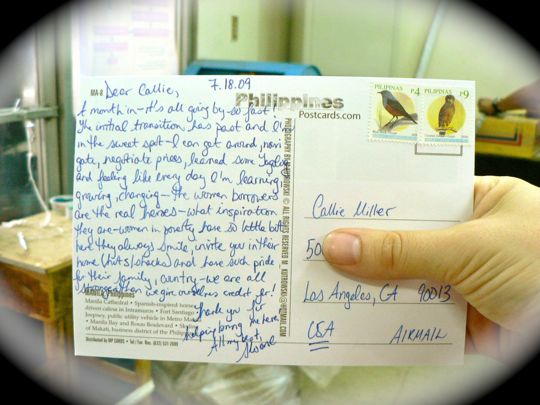 MA-8
Dear Callie,
7.18.09
Philippines
Postcards.com
PILIPINAS
P4
PILIPINAS
P9
A month in-it's all going by-so fast!
The initial transition has past and I'm
in the sweet spot-I can get around, navi
gate, negotiate prices, learned some Tagalog
and feeling like every day I'm learning,
growing, changing-The women borrowers
are the real heroes-what inspiration
they are-women in poverty have so little but
here they always smile, invite you in their
home (huts/shacks) and have such pride
for their family, country-we are all
stronger than we give ourselves credit for!
Thank you for
helping bring me here
All my best,
Philippines
Manila Cathedral • Spanish-inspired horse
driven calesa in Intramuros • Fort Santiago
Jeepney, public utility vehicle in Metro
• Manila Bay and Roxas Boulevard •
of Makati, business district of the Philippines
Distributed by MP CARDS • Tel / Fax Nos. (632)
ALL RIGHTS RESERVED
Callie Miller
50
Los Angeles, CA 90013
USA
AIRMAIL